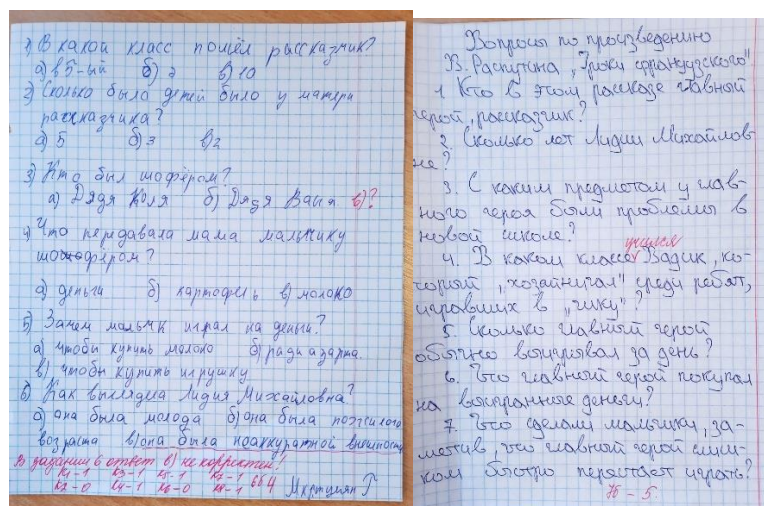 1) В какой класс пошёл рассказчик?
а) в 5-ый б) 2 в) 10
2) Сколько было детей было у матери
рассказчика?
а) 5 б) 3 в) 2
3) Кто был шофёром?
а) Дядя Коля б) Дядя Ваня в)?
4) Что передавала мама мальчику
шофером?
а) деньги б) картофель в) молоко
5) Зачем мальчик играл на деньги?
а) чтобы купить молоко б) ради азарта
в) чтобы купить игрушку
6) Как выглядела Лидия Михайловна?
а) она была молода б) она была пожилого
возраста в) она была неаккуратной внешности
В задании 6 ответ в) не корректен!
К1-1 К3-1 К5-1 К7-1
К2-0 К4-1 К6-0 К8-1 6б4
Мкртчян Г
Вопросы по произведению
В. Распутина „Уроки французского"
1. Кто в этом рассказе главный
герой, рассказчик?
2. Сколько лет Лидии Михайлов-
не?
3. С каким предметом у глав-
ного героя были проблемы в
новой школе?
учился
4. В каком классе Вадик, ко-
торый „хозайничал" среди ребят,
игравших в „чику"?
5. Сколько главный герой
обычно выигрывал за день?
6. Что главный герой покупал
на выигранные деньги?
7. Что сделали мальчики, за-
метив, что главный герой слиш-
ком быстро перестаёт играть?
К - 5